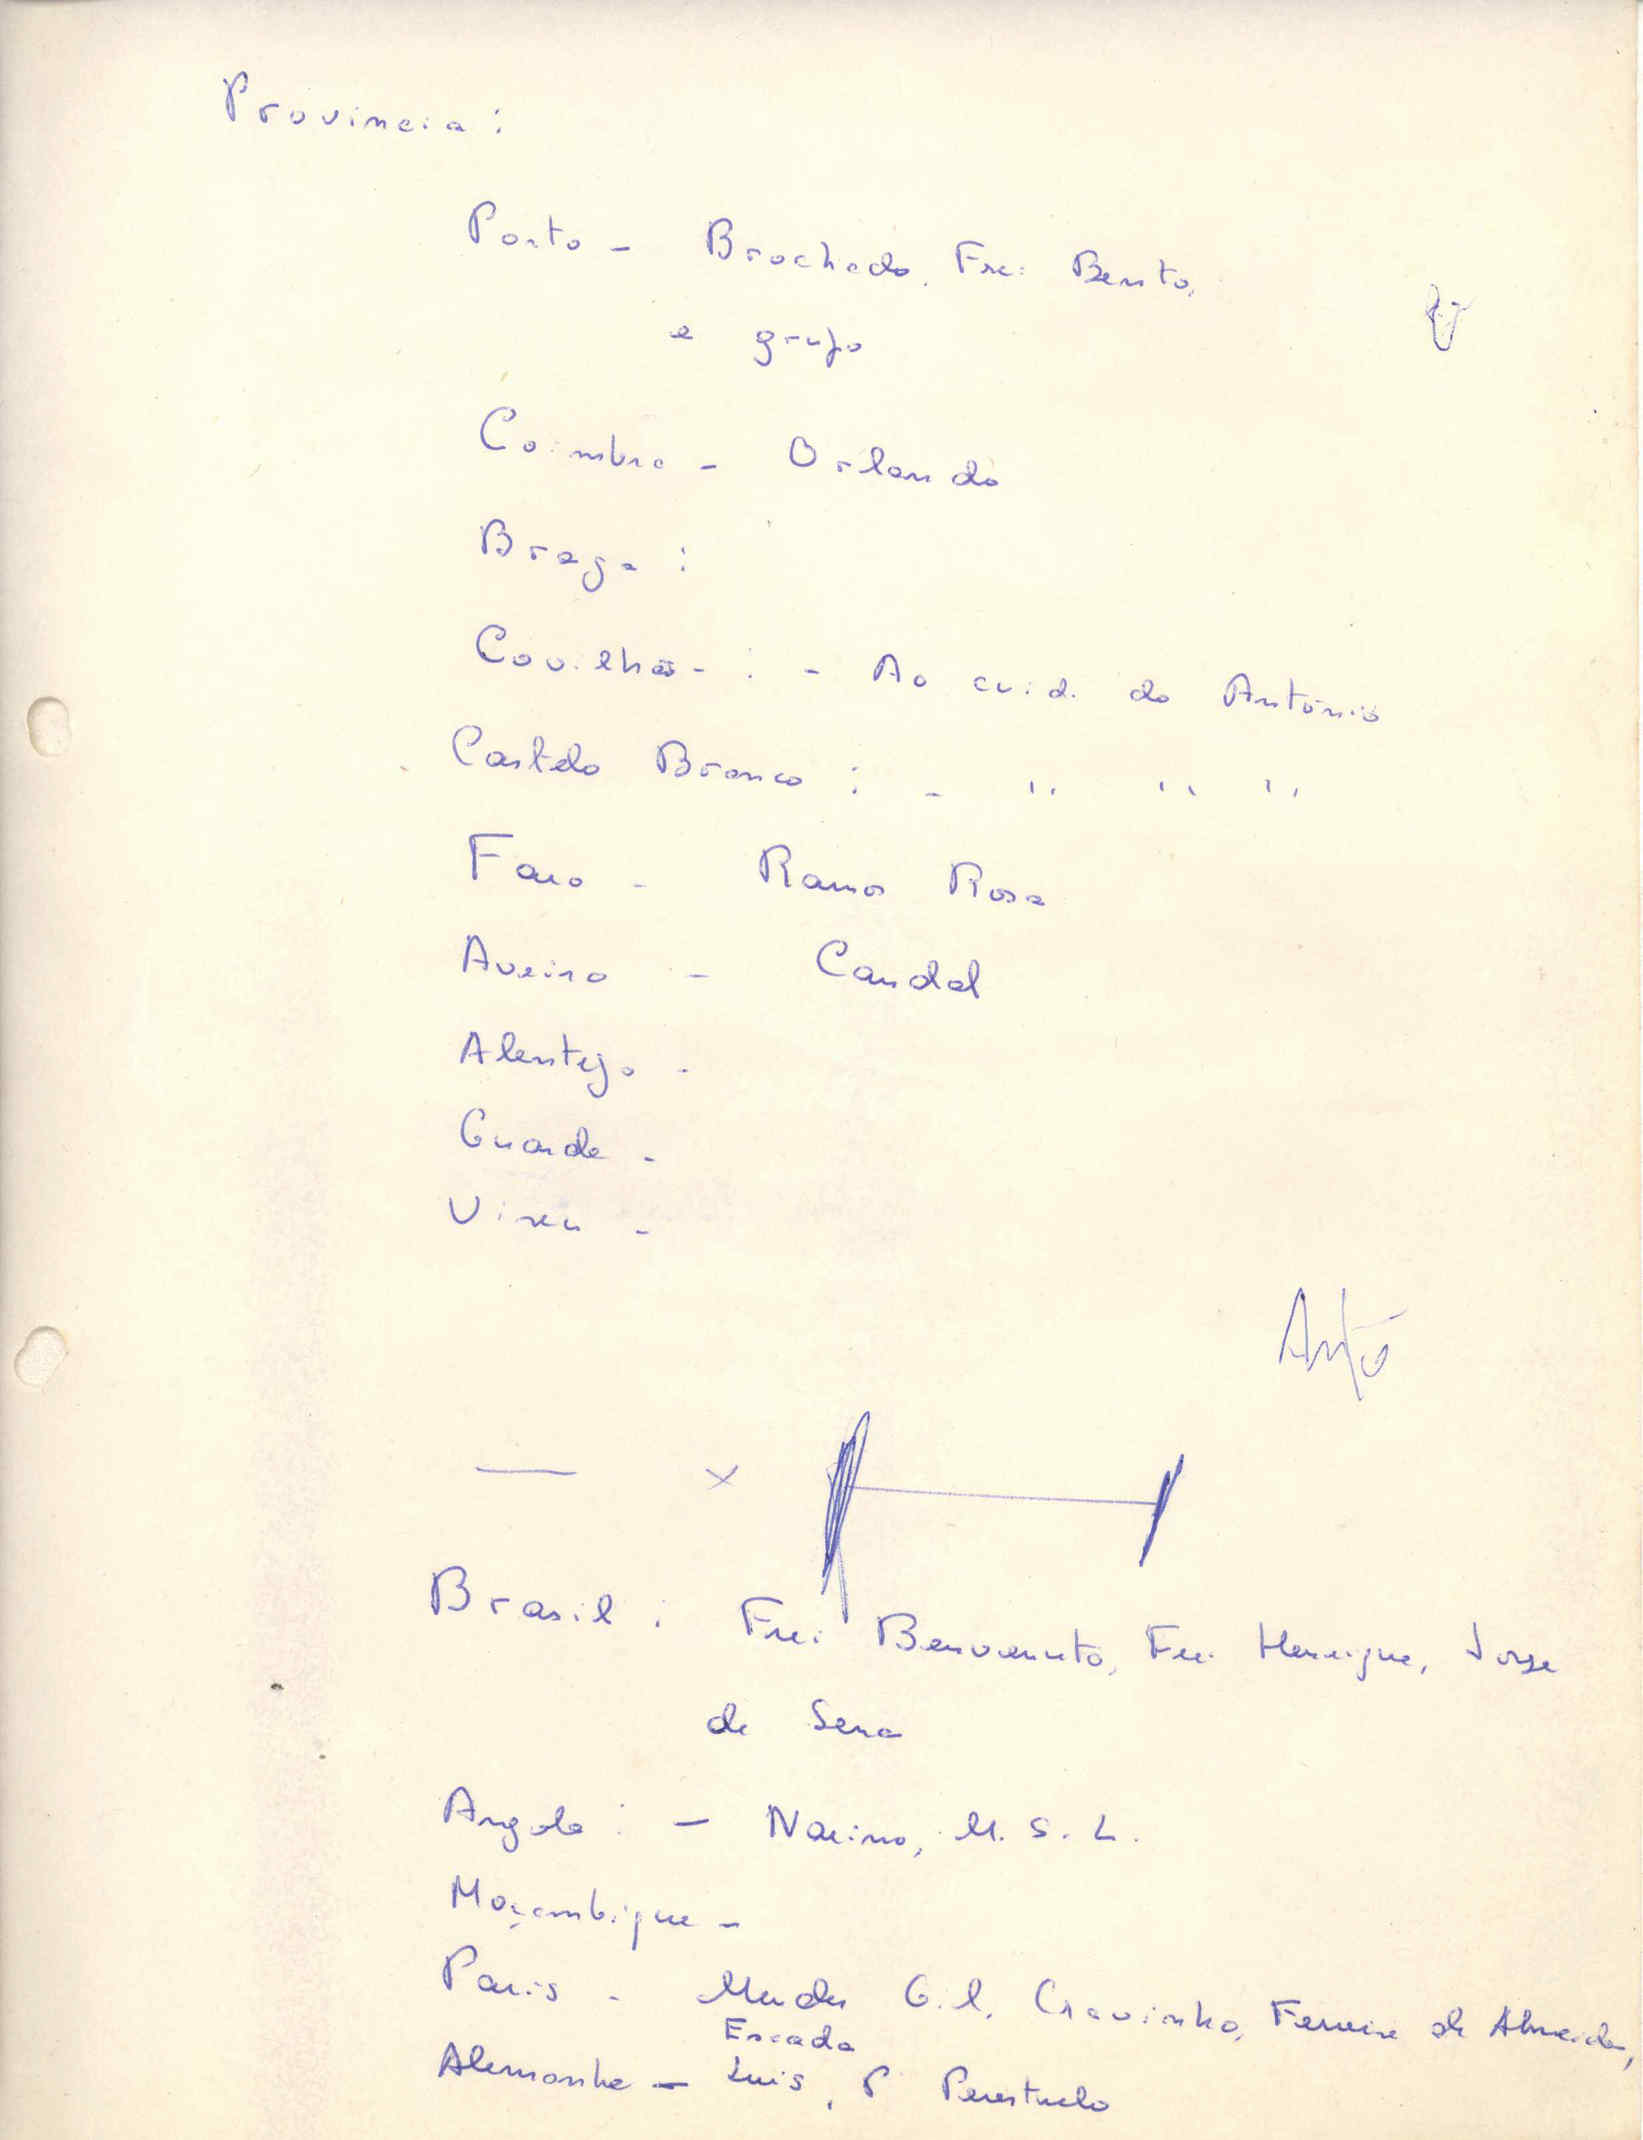 Provincia :
Porto - Brochado, Frei Bento,
e grupo
Coimbra - Orlando
Braga :
Covilhã - : - Ao cuid. do António
Castelo Branco : - '' '' ''
Faro - Ramos Rosa
Aveiro - Candal
Alentejo -
Guarda -
Viseu -
Antó
— x
Brasil : Frei Benvenuto, Frei Henrique, Jorge
de Sena
Angola : - M. S. L.
Moçambique -
Paris - Mendes Gil, Cravinho, Ferreira de Almeida,
Escada
Alemanha - Luis, P Perestrelo